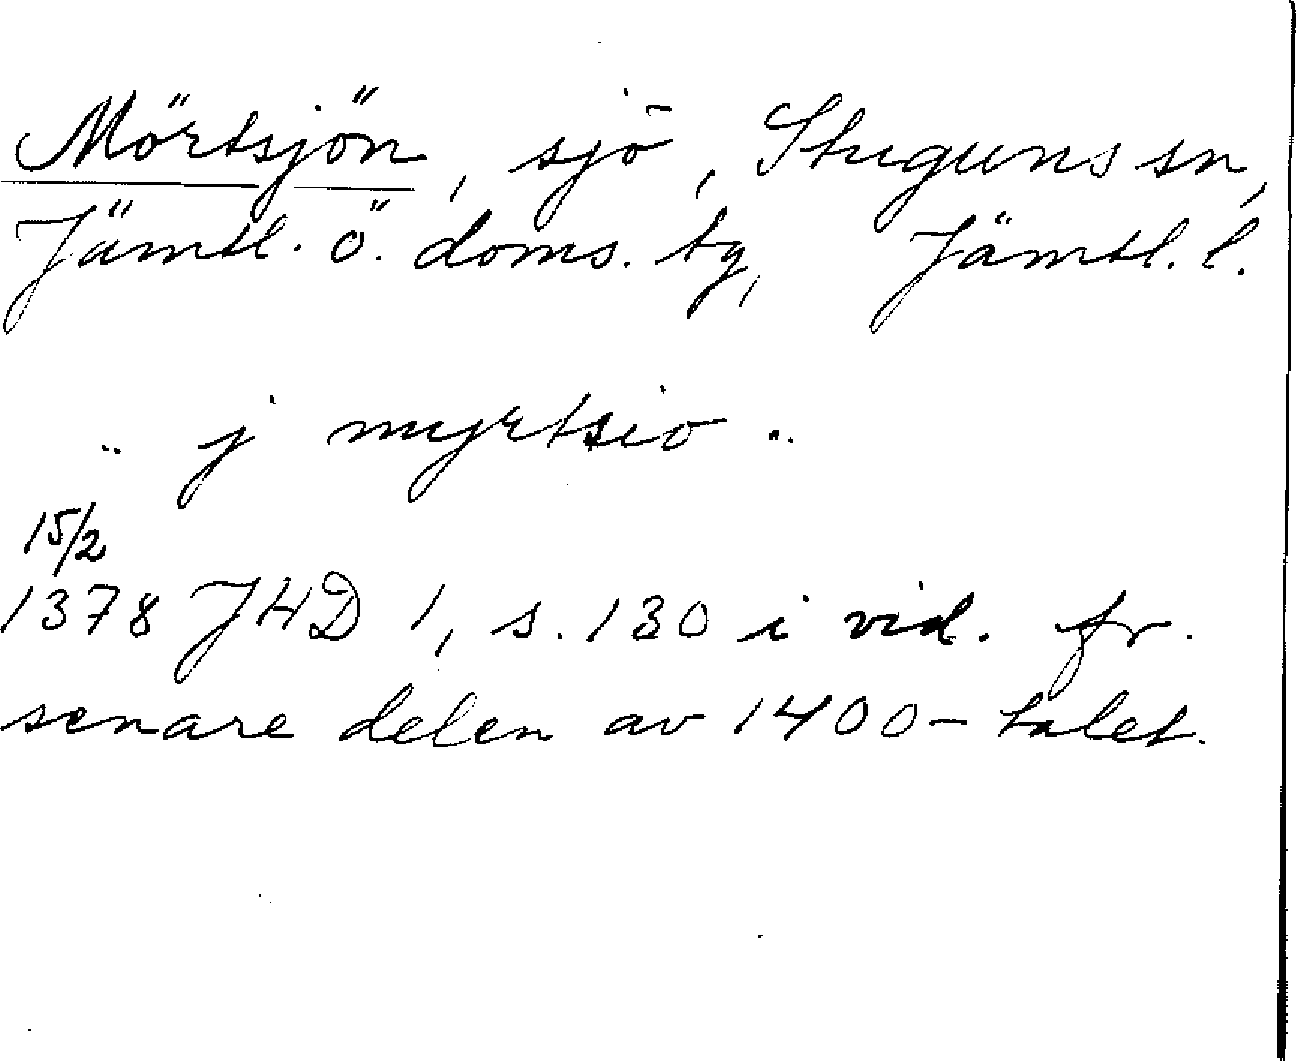 Mörtsjön, sjö, Stuguns sn,
Jämtl. ö. doms. tg, Jämtl. l.
.. j myrtsio ..
15/2
1378 JHD 1, s. 130 i vid. fr.
senare delen av 1400-talet.